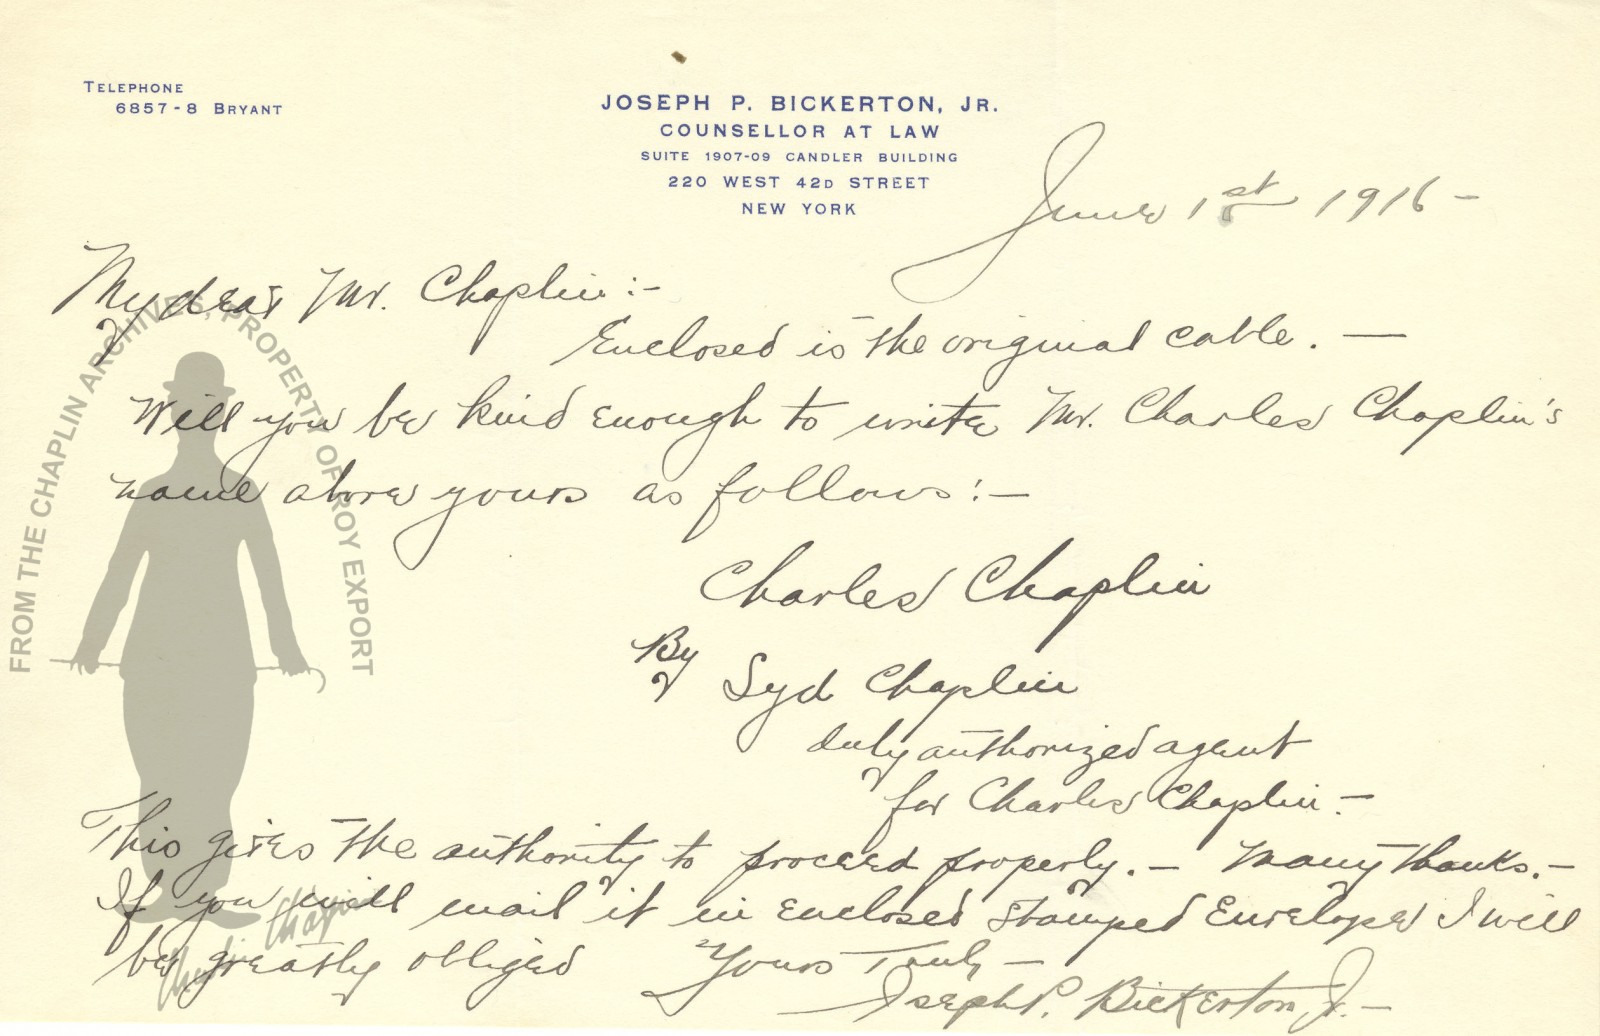 TELEPHONE
6857-8 BRYANT
JOSEPH P. BICKERTON, JR.
COUNSELLOR AT LAW
SUITE 1907-09 CANDLER BUILDING
220 WEST 42D STREET
NEW YORK
June 1st 1916-
My dear Mr. Chaplin:-
Enclosed is the original cable. —
Will you be kind enough to write Mr. Charles Chaplin's
name above yours as follows:-
Charles Chaplin
By Syd Chaplin
duly authorized agent
for Charles Chaplin-
This gives the authority to proceed properly.- Many thanks.-
If you will mail it in enclosed stamped Envelope I will
be greatly obliged Yours Truly-
Joseph P. Bickerton, Jr.-
FROM THE CHAPLIN ARCHIVES, PROPERTY OF ROY EXPORT
Charlie Chaplin